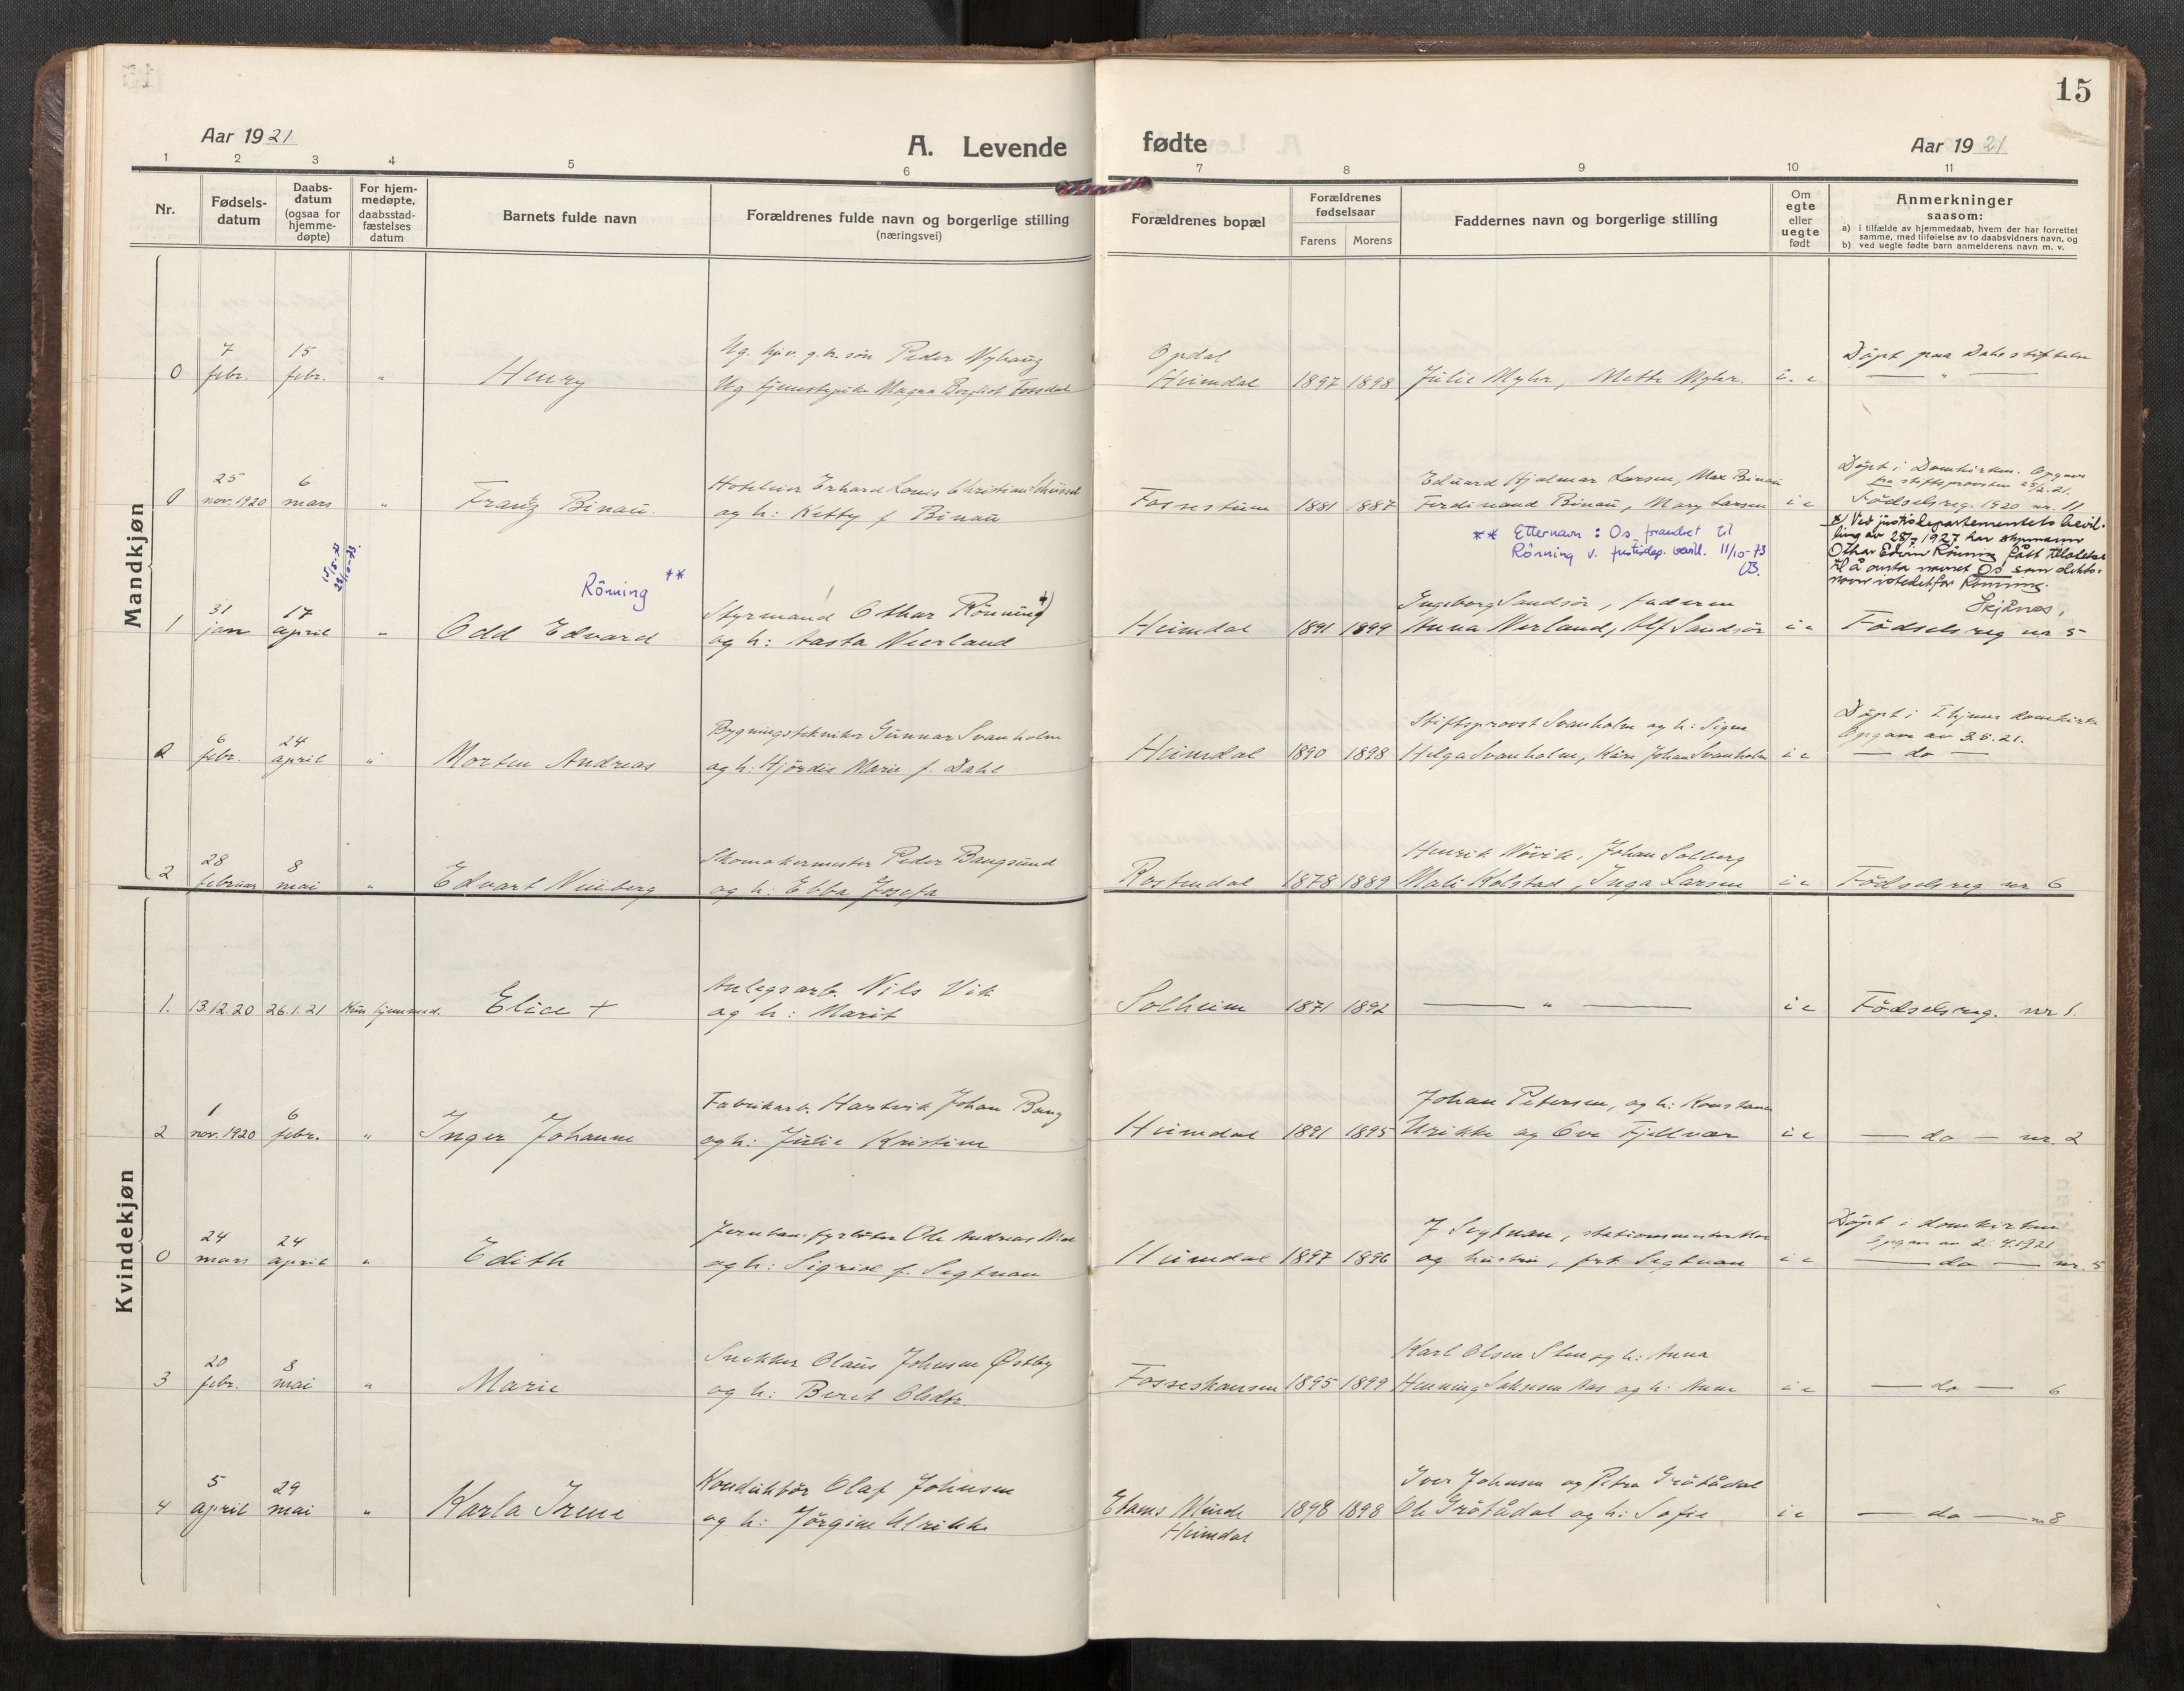 15
Aar 1921
A. Levende
fødte
Aar 1921
1 2 3 4 5 6 7 8 9 10 11
Nr.
Fødsels-
datum
Daabs-
datum
(ogsaa for
hjemme-
døpte)
For hjem-
medøpte,
daabsstad-
fæstelses
datum
Barnets fulde navn
Forældrenes fulde navn og borgerlige stilling
(næringsvei)
Forældrenes bopæl
Forældrenes
fødselsaar
Farens Morens
Faddernes navn og borgerlige stilling
Om
egte
eller
uegte
født
Anmerkninger
saasom:
a) i tilfælde av hjemmedaab, hvem der har forrettet
samme, med tilføielse av to daabsvidners navn, og
b) ved uegte fødte barn anmelderens navn m. v.
Mandkjøn
7 15 Ug. søn Peder Nyhaug Opdal Döpt paa
0 febr. febr. " Henry Ug tjenestepike Magna Borghot Fossdal Heimdal 1897 1898 Julie Myhr, Mette Myhr. — " —
25 6 Hoteleier Erhard Louis Christian Eduard Hjalmar Larsen, Max Binau Döpt i Domkirken. Opgave
fra stiftsprovsten
0 nov. 1920 mars " Franz Binau og h: Ketty f. Binau 1881 1887 Ferdinand Binau, Mary Larsen i e Födselsreg. 1920 nr. 11
** Etternavn: Os forandret til
Rönning v. justisdep. bevill. 11/10-73
*) Ved justisdepartementets bevil-
ling av 28/7 1927 har styrmann
Othar Edvin Rönning fått tillatelse
til å anta navnet Os som slekts-
navn istedetfor Rönning.
23/10-73.
Rönning **
31 17 Styrmand Othar Rönning *) Ingeborg Sandsör, faderen
1 jan april " Odd Edvard og h: Aasta Neerland Heimdal 1891 1899 Anna Nerland, Alf Sandsör i e Födselsreg nr 5
6 24 Bygningstekniker Gunnar Svanholm Stiftsprovst Svanholm og h: Signe Döpt i T.hjems domkirke
Opgave av 3.5.21.
2 febr. april " Morten Andreas og h: Hjördis Marie f. Dahl Heimdal 1890 1898 Helga Svanholm, Kåre Johan Svanholm i e — do —
28 8 Skomakermester Peder Bangsund Henrik Növik, Johan Solberg
2 februar mai " Edvart Nüberg og h: Ebba Josefa Rostendal 1878 1889 Mali Kolstad, Inga Larsen i e Födselsreg nr 6
Kvindekjøn
Anlegsarb. Nils Vik
1. 13.12.20 26.1.21 Kun hjemmed. Elice + og h: Marit Solheim 1871 1892 — " — i e Födselsreg. nr 1.
1 6 Fabrikarb. Hartvik Johan Bang Johan Petersen, og h: Konstanse
2 nov. 1920 febr. " Inger Johanne og h: Julie Kristine Heimdal 1891 1895 Ulrikke og Ove Fjellvær i e — do — nr. 2
24 24 Jernban. fyrböter Ole Andreas Moe J Segtnan, stationsmester Moe Döpt i domkirken
Opgave av
0 mars april " Edith og h: Sigrid f. Segtnan Heimdal 1897 1896 og hustru, frk Segtnan i e — do — nr. 5
20 8 Snekker Olaus Johnsen Østby Karl Olsen Sten og h: Anna
3 febr. mai " Marie og h: Beret Olsdtr. Fosseskansen 1895 1899 Henning Aas og h: Anne i e — do — 6
5 29 Konduktör Olaf Johnsen Iver Johnsen og Petra Grötådal
4 april mai " Karla Irene og h: Jörgine Ulrikke Elams Minde 1898 1898 Ole Grötådal og h: Sofie i e — do — nr 8
Heimdal